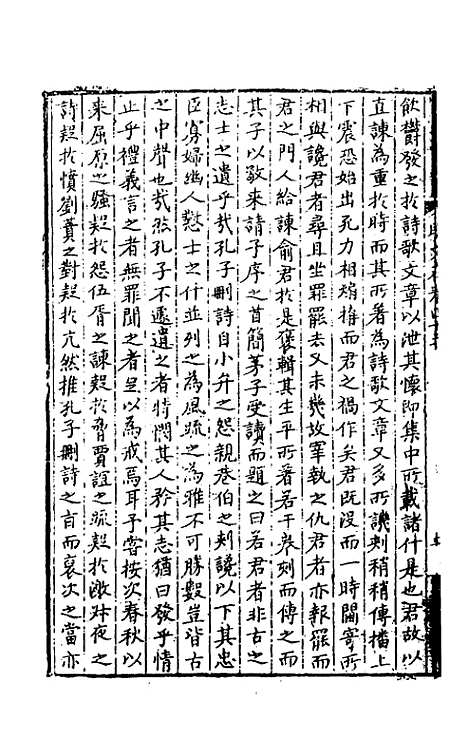 飲欝發之於詩歌文章以泄其懷即集中所載諸什是也君故以
直諫為重於時而其所著為詩歌文章又多所譏刺稍稍傳播上
下震恐始出死力相煽搆而君之禍作矣君既沒而一時閫寄所
相與讒君者尋且坐罪罷去又未幾故宰執之仇君者亦報罷而
君之門人給諫俞君於是裒輯其生平所著若干卷刻而傳之而
其子以敬來請予序之首簡茅子受讀而題之曰若君者非古之
志士之遺乎哉孔子刪詩自小弁之怨親巷伯之刺讒以下其忠
臣寡婦幽人懟士之什並列之為風疏之為雅不可勝數豈皆古
之中聲也哉然孔子不遽遺之者特憫其人矜其志猶曰發乎情
止乎禮義言之者無罪聞之者足以為戒焉耳予嘗按次春秋以
來屈原之騷疑於怨伍胥之諫疑於脅賈誼之疏疑於激叔夜之
詩疑於憤劉蕡之對疑於亢然推孔子刪詩之旨而裒次之當亦